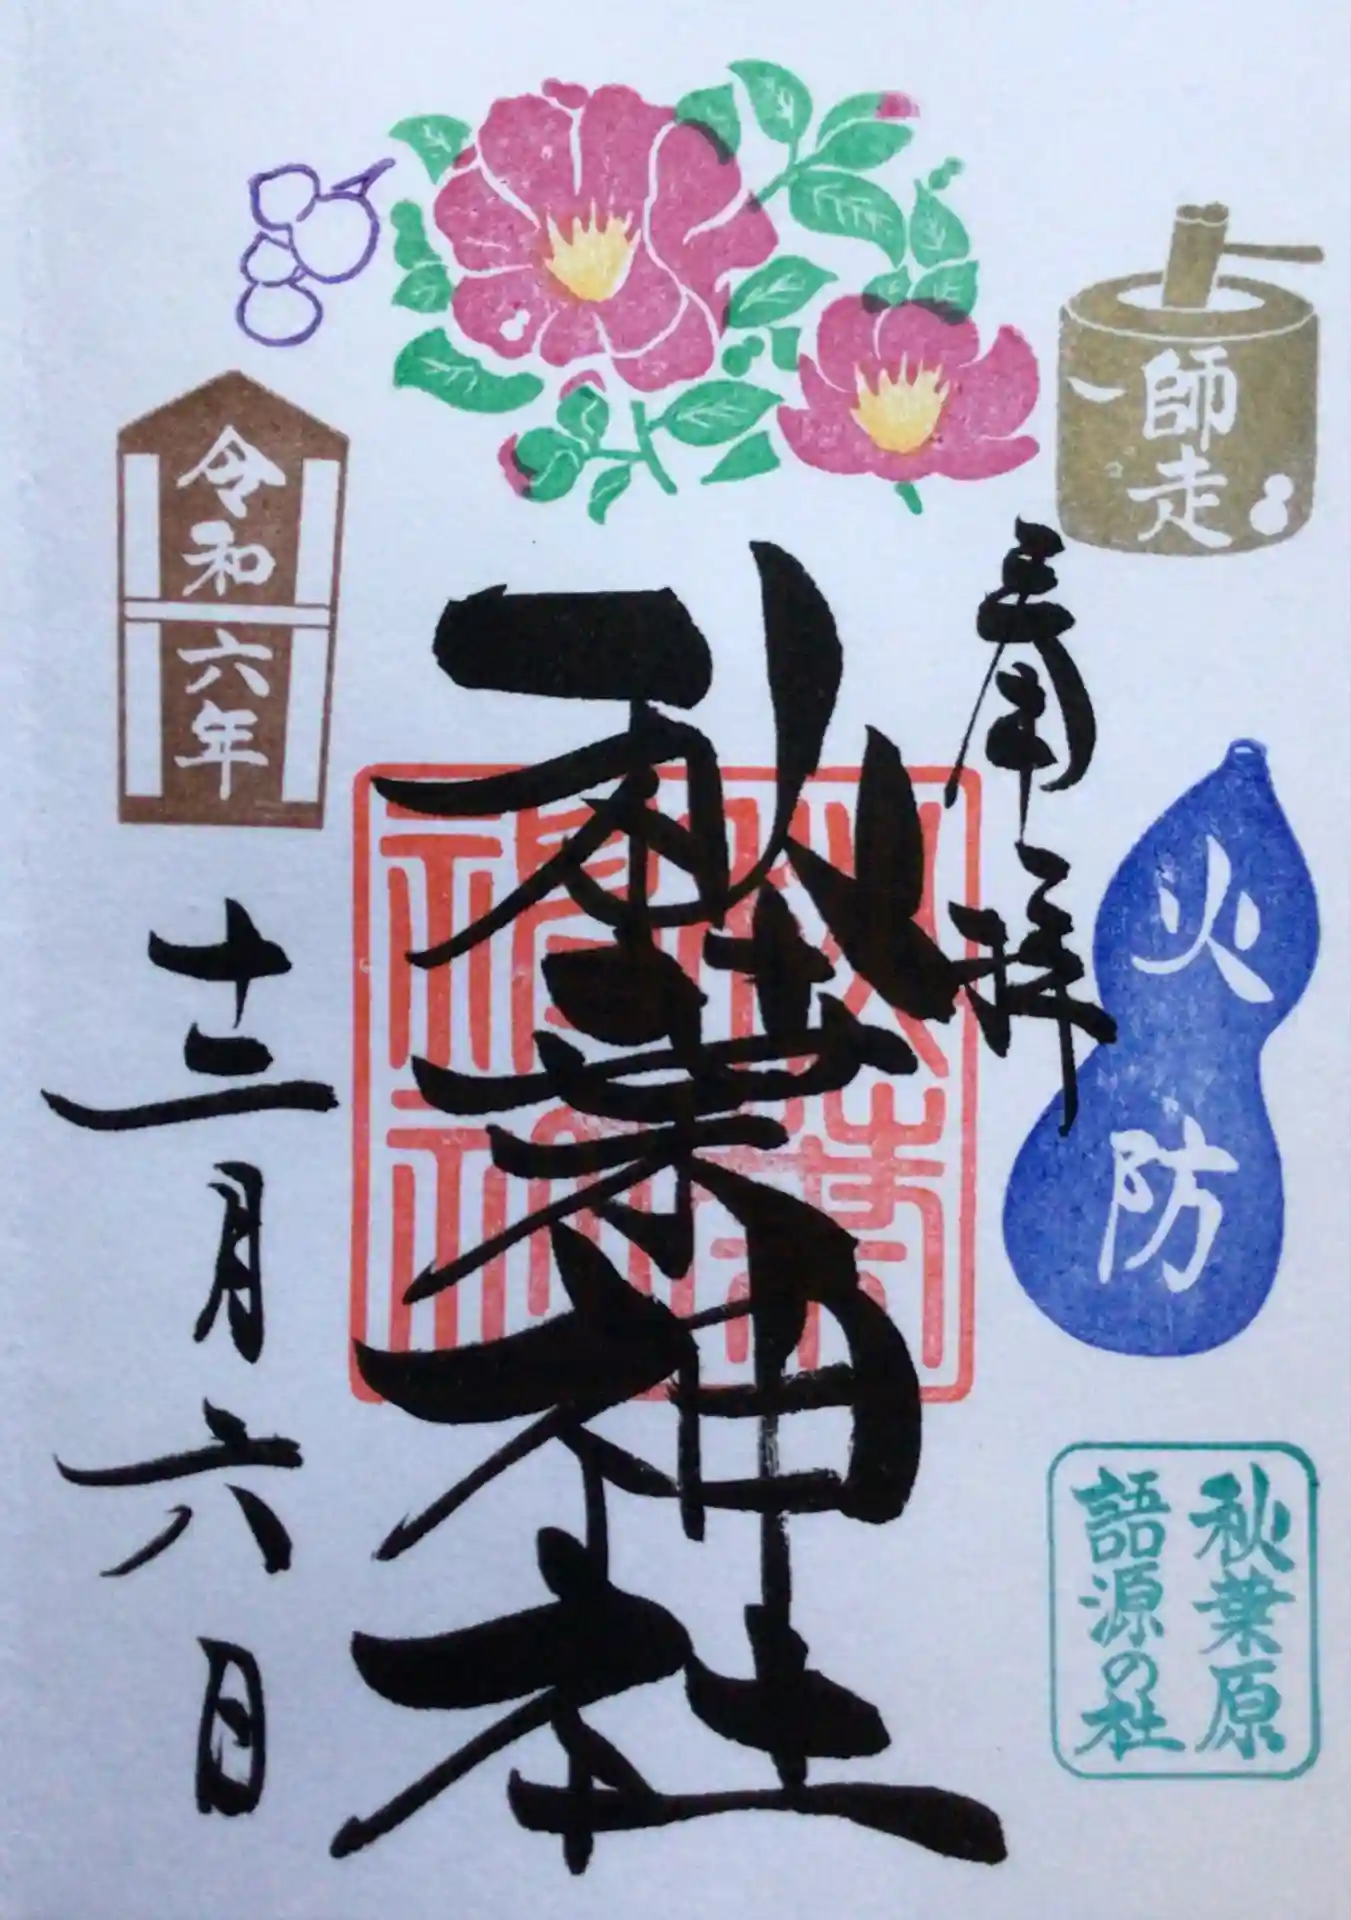 師走
奉拝
火防
秋葉原
語源の杜
秋葉神社
令和六年
十二月六日